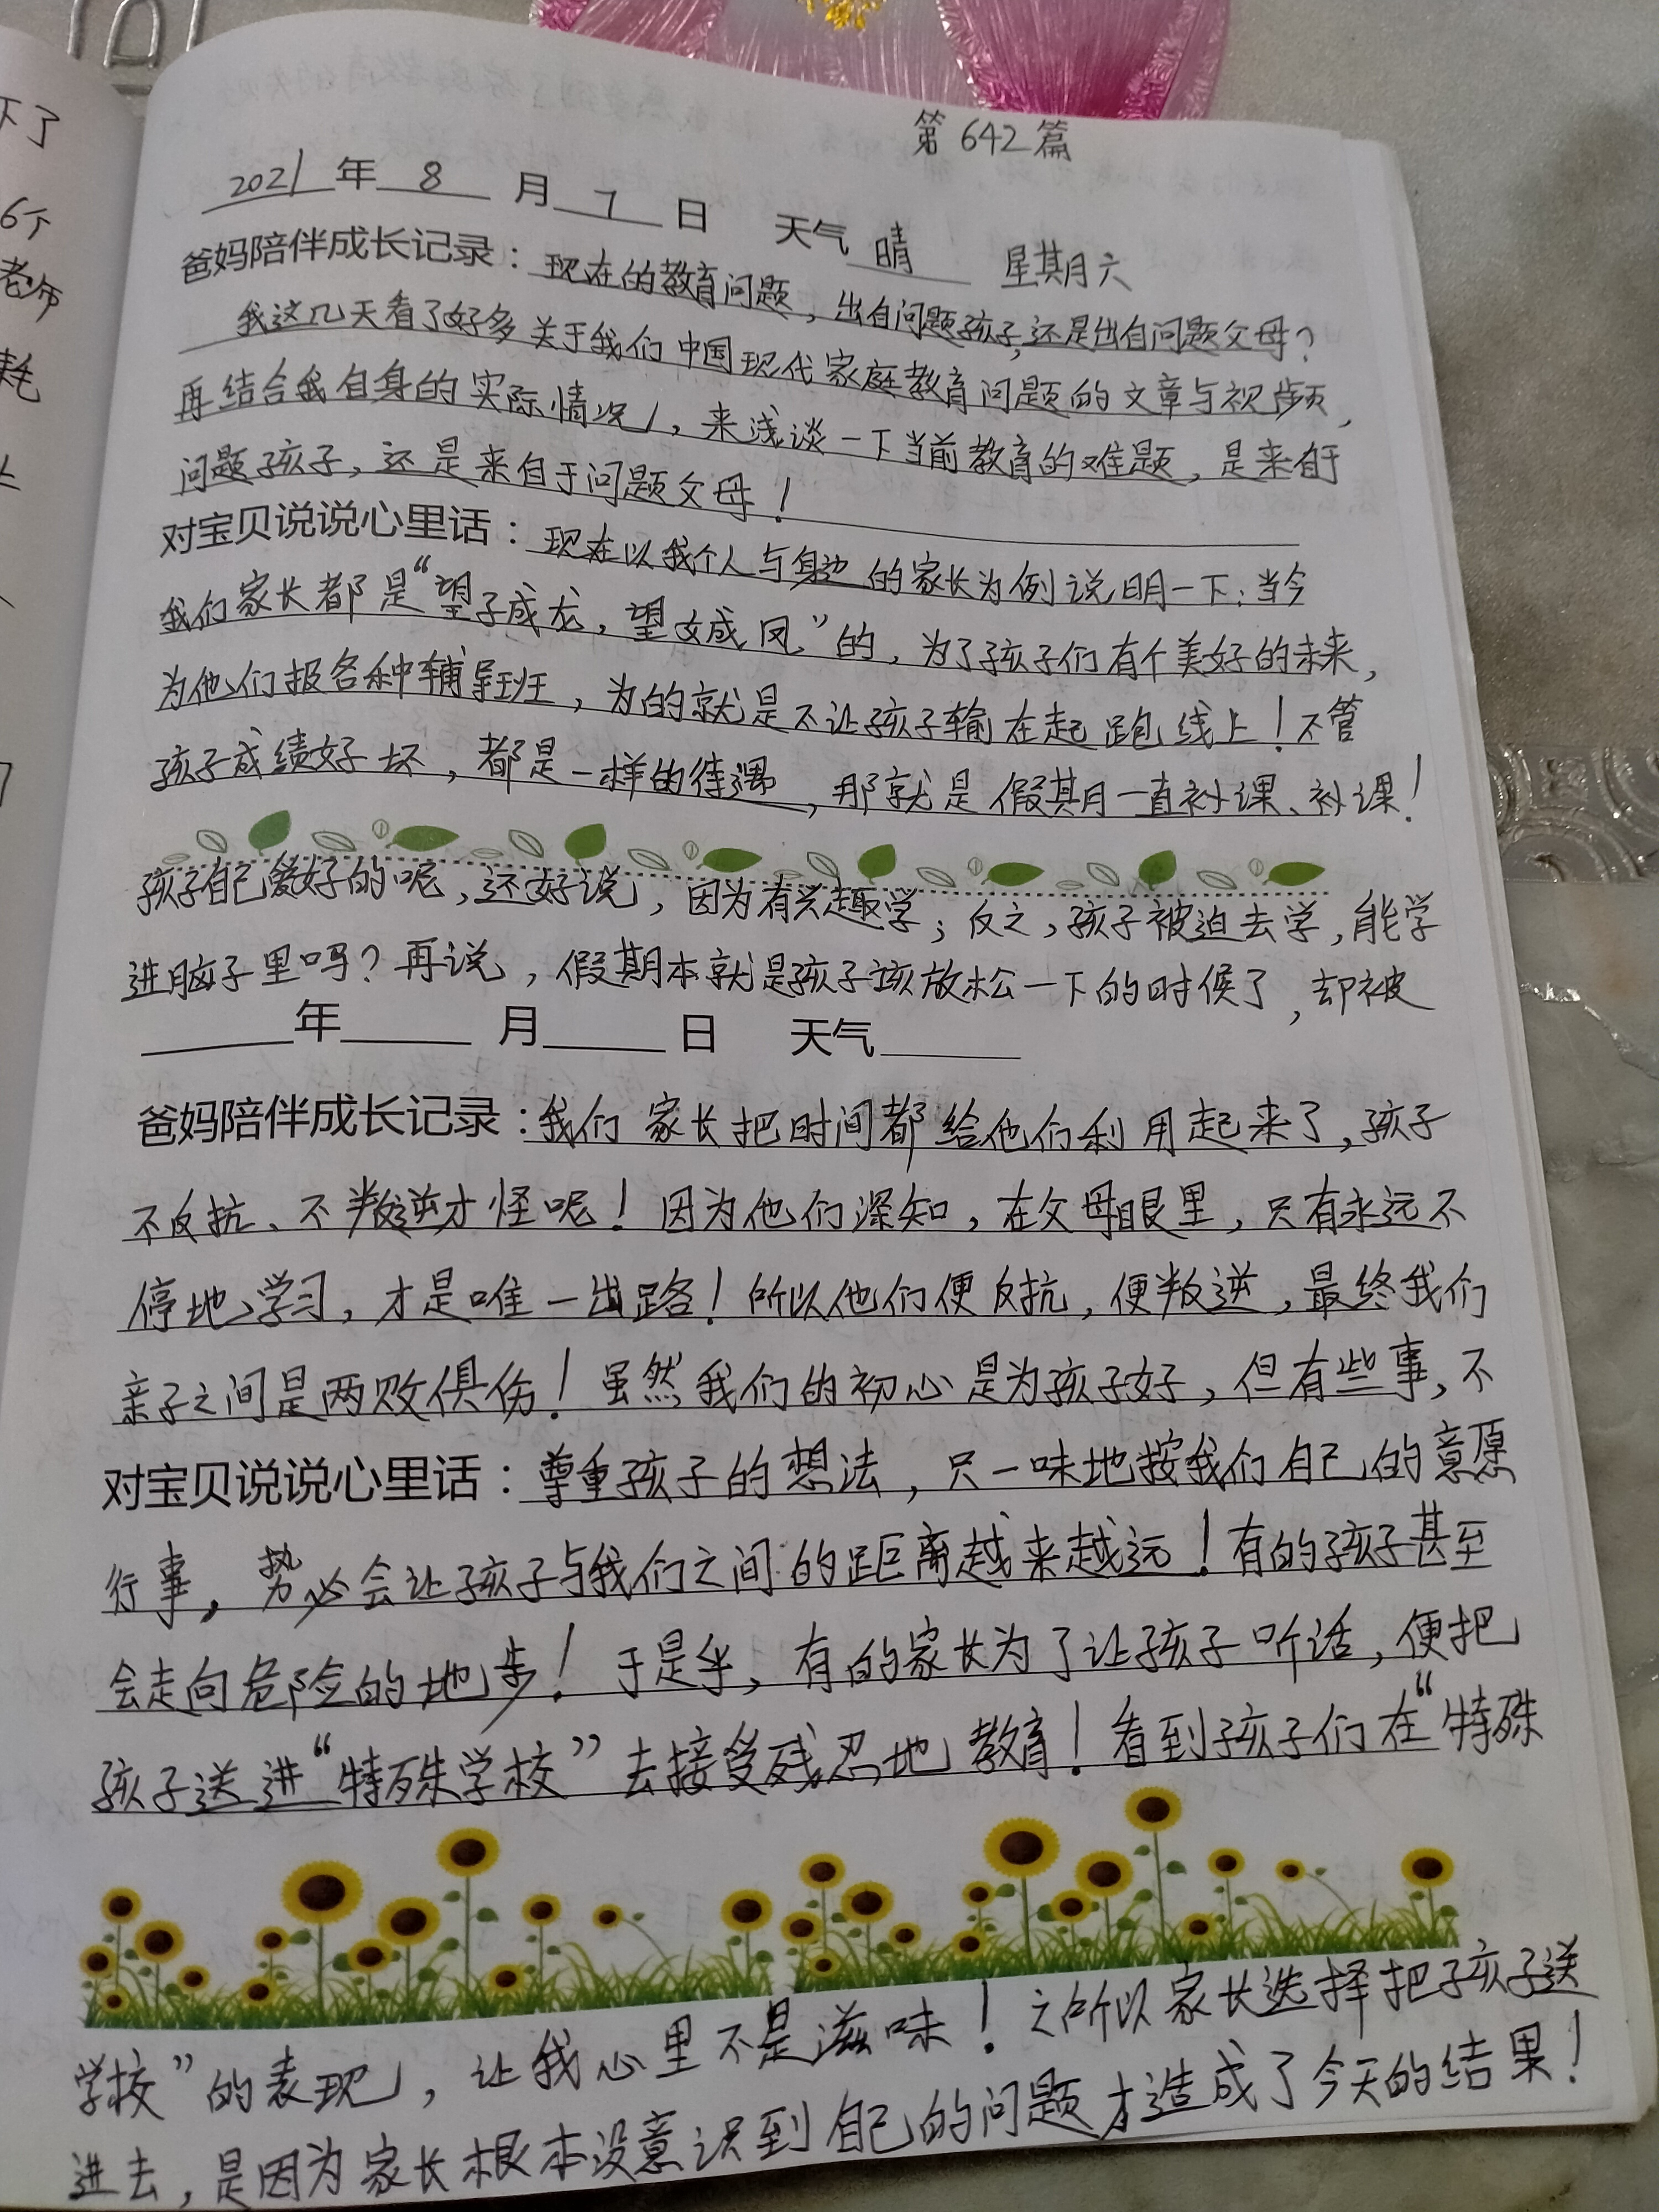 第642篇
2021年 8 月 7 日 天气 晴 星期六
爸妈陪伴成长记录：现在的教育问题，出自问题孩子，还是出自问题父母？
我这几天看了好多关于我们中国现代家庭教育问题的文章与视频，
再结合我自身的实际情况，来浅谈一下当前教育的难题，是来自于
问题孩子，还是来自于问题父母！
对宝贝说说心里话：现在以我个人与身边的家长为例说明一下：当今
我们家长都是“望子成龙，望女成凤”的，为了孩子们有个美好的未来，
为他们报各种辅导班，为的就是不让孩子输在起跑线上！不管
孩子成绩好坏，都是一样的待遇，那就是假期一直补课、补课！
孩子自己爱好的呢，还好说，因为有兴趣学；反之，孩子被迫去学，能学
进脑子里吗？再说，假期本就是孩子该放松一下的时候了，却被
年 月 日 天气
爸妈陪伴成长记录：我们家长把时间都给他们利用起来了，孩子
不反抗、不叛逆才怪呢！因为他们深知，在父母眼里，只有永远不
停地学习，才是唯一出路！所以他们便反抗，便叛逆，最终我们
亲子之间是两败俱伤！虽然我们的初心是为孩子好，但有些事，不
对宝贝说说心里话：尊重孩子的想法，只一味地按我们自己的意愿
行事，势必会让孩子与我们之间的距离越来越远！有的孩子甚至
会走向危险的地步！于是乎，有的家长为了让孩子听话，便把
孩子送进“特殊学校”去接受残忍地教育！看到孩子们在“特殊
学校”的表现，让我心里不是滋味！之所以家长选择把孩子送
进去，是因为家长根本没意识到自己的问题才造成了今天的结果！
下了
6个
老师
耗